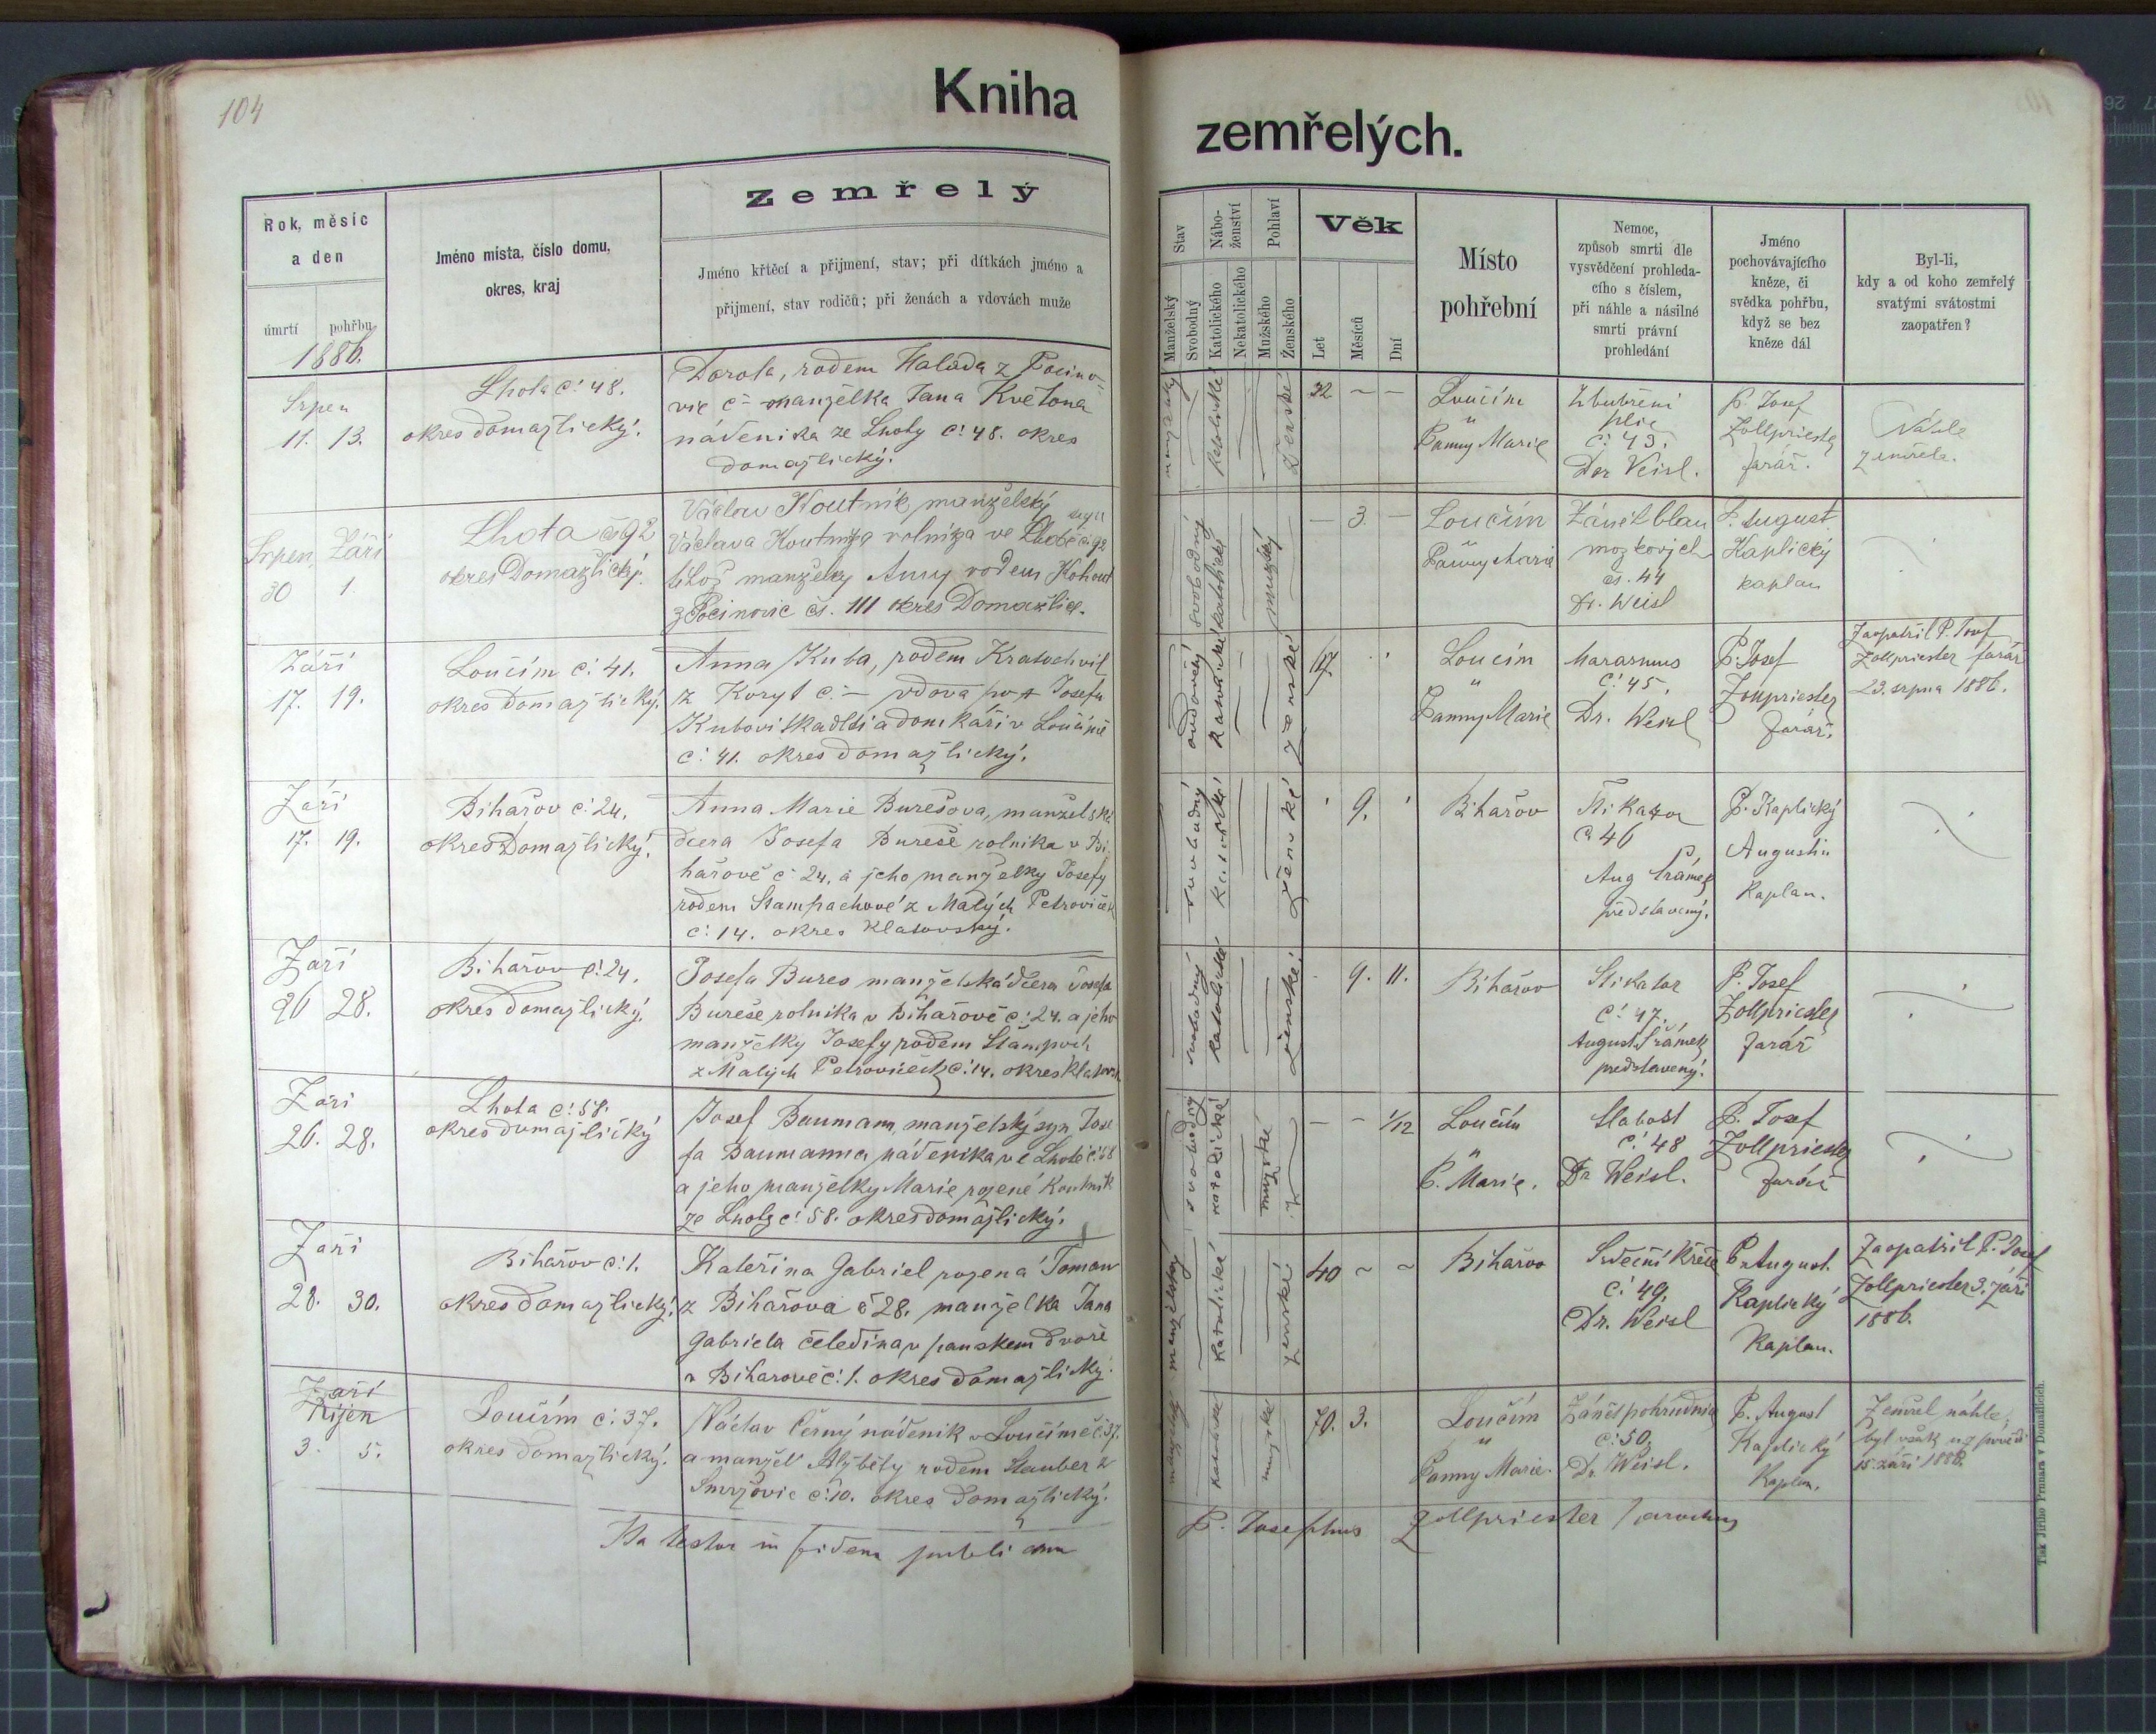 104
Kniha
zemřelých.
Rok, měsíc
a den
úmrtí pohřbu
1886.
Jméno místa, číslo domu,
okres, kraj
Zemřelý
Jméno křtěcí a přijmení, stav; při dítkách jméno a
přijmení, stav rodičů; při ženách a vdovách muže
Stav
Manželský
Svobodný
Nábo-
ženství
Katolického
Nekatolického
Pohlaví
Mužského
Ženského
Věk
Let
Měsíců
Dní
Místo
pohřební
Nemoc,
způsob smrti dle
vysvědčení prohleda-
cího s číslem,
při náhle a násilné
smrti právní
prohledání
Jméno
pochovávajícího
kněze, či
svědka pohřbu,
když se bez
kněze dál
Byl-li,
kdy a od koho zemřelý
svatými svátostmi
zaopatřen?
Srpen
11. 13.
Lhota č. 48.
okres domažlický.
Dorota, rodem Halada z Pocino-
vic č – manželka Jana Květona
nádeníka ze Lhoty č. 48. okres
domažlický.
ženské
Loučim
"
Panny Marie
plic
č. 43.
Dor Veisl.
P. Josef
Zollpriester
farář.
Náhle
zemřela.
Srpen Září
30 1.
Lhota čís 92
okres Domažlický.
Václav Koutník, manželský syn
Václava Koutníka rolníka ve Lhotě čís 92
téhož manželky Anny rodem Kohout
z Pocinovic čs. 111 okres Domažlice.
svobodný
katolické
mužský
– 3. –
Loučim
"
Panny Marie
Zánět blan
mozkových
čs. 44
Dr. Weisl
P. August
Kaplický
kaplan
Září
17. 19.
Loučím č. 41.
okres domažlický.
Anna Kuba, rodem Kratochvil
z Koryt č. – vdova po + Josefu
Kubovi tkadlci a domkáři v Loučimě
č. 41. okres domažlický.
ovdovělý
ženské
Loučim
"
Panny Marie
Marasmus
č. 45.
Dr. Weisl
P. Josef
Zollpriester
farář.
Zaopatřil P. Josef
Zollpriester farář
23. srpna 1886.
Září
17. 19.
Bihařov č. 24.
okres Domažlický.
Anna Marie Burešova, manželská
dcera Josefa Bureše rolníka v Bi-
hařově č. 24, a jeho manželky Josefy
rodem Štampachové z Malých Petroviček
č. 14. okres Klatovský.
svobodný
ženské
9.
Bihařov
č 46
Aug Šrámek
představený.
P. Kaplický
Augustin
Kaplan.
Září
26 28.
Bihařov č. 24.
okres domažlický.
Josefa Bures manželská dcera Josefa
Bureše rolníka v Bihařově č. 24. a jeho
manželky Josefy rodem Štampach
z Malých Petroviček č. 14. okres Klatovsk
svobodný
katolické
ženské
9. 11.
Bihařov
č. 47.
August Šrámek
představený.
P. Josef
Zollpriester
farář
Září
26. 28.
Lhota č. 58.
okres domažlický
Josef Baumann, manželský syn Jose
fa Baumanna nádeníka ve Lhotě č. 58
a jeho manželky Marie rozené Koutník
ze Lhoty č. 58. okres domažlický.
svobodný
katolické
mužské
– – 1/12
Loučim
"
P. Marie.
Slabost
č. 48
Dr Weisl.
P. Josef
Zollpriester
farář
Září
28. 30.
Bihařov č. 1.
okres domažlický.
Kateřina Gabriel rozená Toman
z Bihařova č 28. manželka Jana
Gabriela čeledína v panském dvoře
v Bihařově č. 1. okres domažlický.
manželský
katolické
ženské
40 ~ ~
Bihařov
č. 49.
Dr. Weisl
P. August.
Kaplický
Kaplan.
Zaopatřil P. Josef
Zollpriester 3. září
1886.
Září
Říjen
3. 5.
Loučím č. 37.
okres domažlický.
Václav Černý nádeník v Loučimě č. 37.
a manžel Alžběty rodem Stauber z
Smržovic č. 10. okres domažlický.
manželský
katolické
mužské
70. 3.
Loučím
"
Panny Marie.
Zánět pohrudnice
č. 50.
Dr. Weisl.
P. August
Kaplický
Kaplan.
Zemřel náhle,
byl však
15. září 1886.
Ita testor in fidem publicam
P. Josephus Zollpriester parochus
Tisk Jiřího Prunara v Domažlicích.